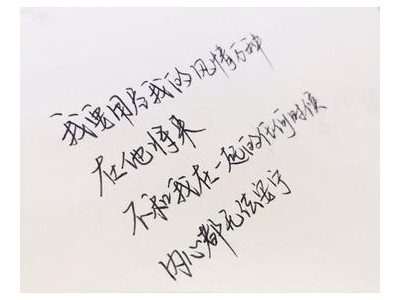 我要用与我的风情万种
在他将来
不和我在一起的任何时候
内心都无法安宁